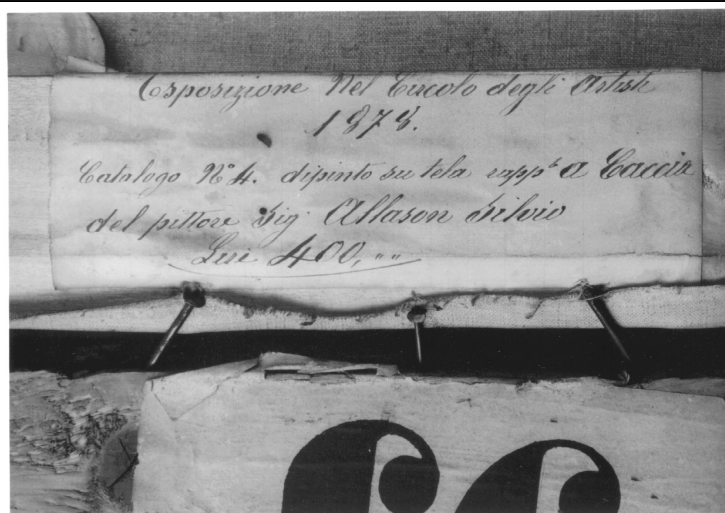 Esposizione Nel Circolo degli Artisti
1878.
Catalogo Nº 4. dipinto su tela rapp.te A Caccia
del pittore Sig. Allason Silvio
Lire 400, „„
66